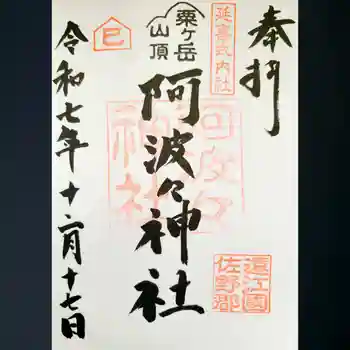 奉拝
延喜式内社
粟ヶ岳
山頂
阿波々神社
阿波々
神社
遠江國
佐野郡
巳
令和七年十二月十七日